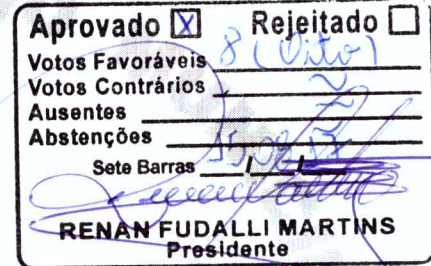 Aprovado ☒ Rejeitado ☐
Votos Favoráveis 8 (Oito)
Votos Contrários ~
Ausentes ~
Abstenções ~
Sete Barras 15/08/17
RENAN FUDALLI MARTINS
Presidente